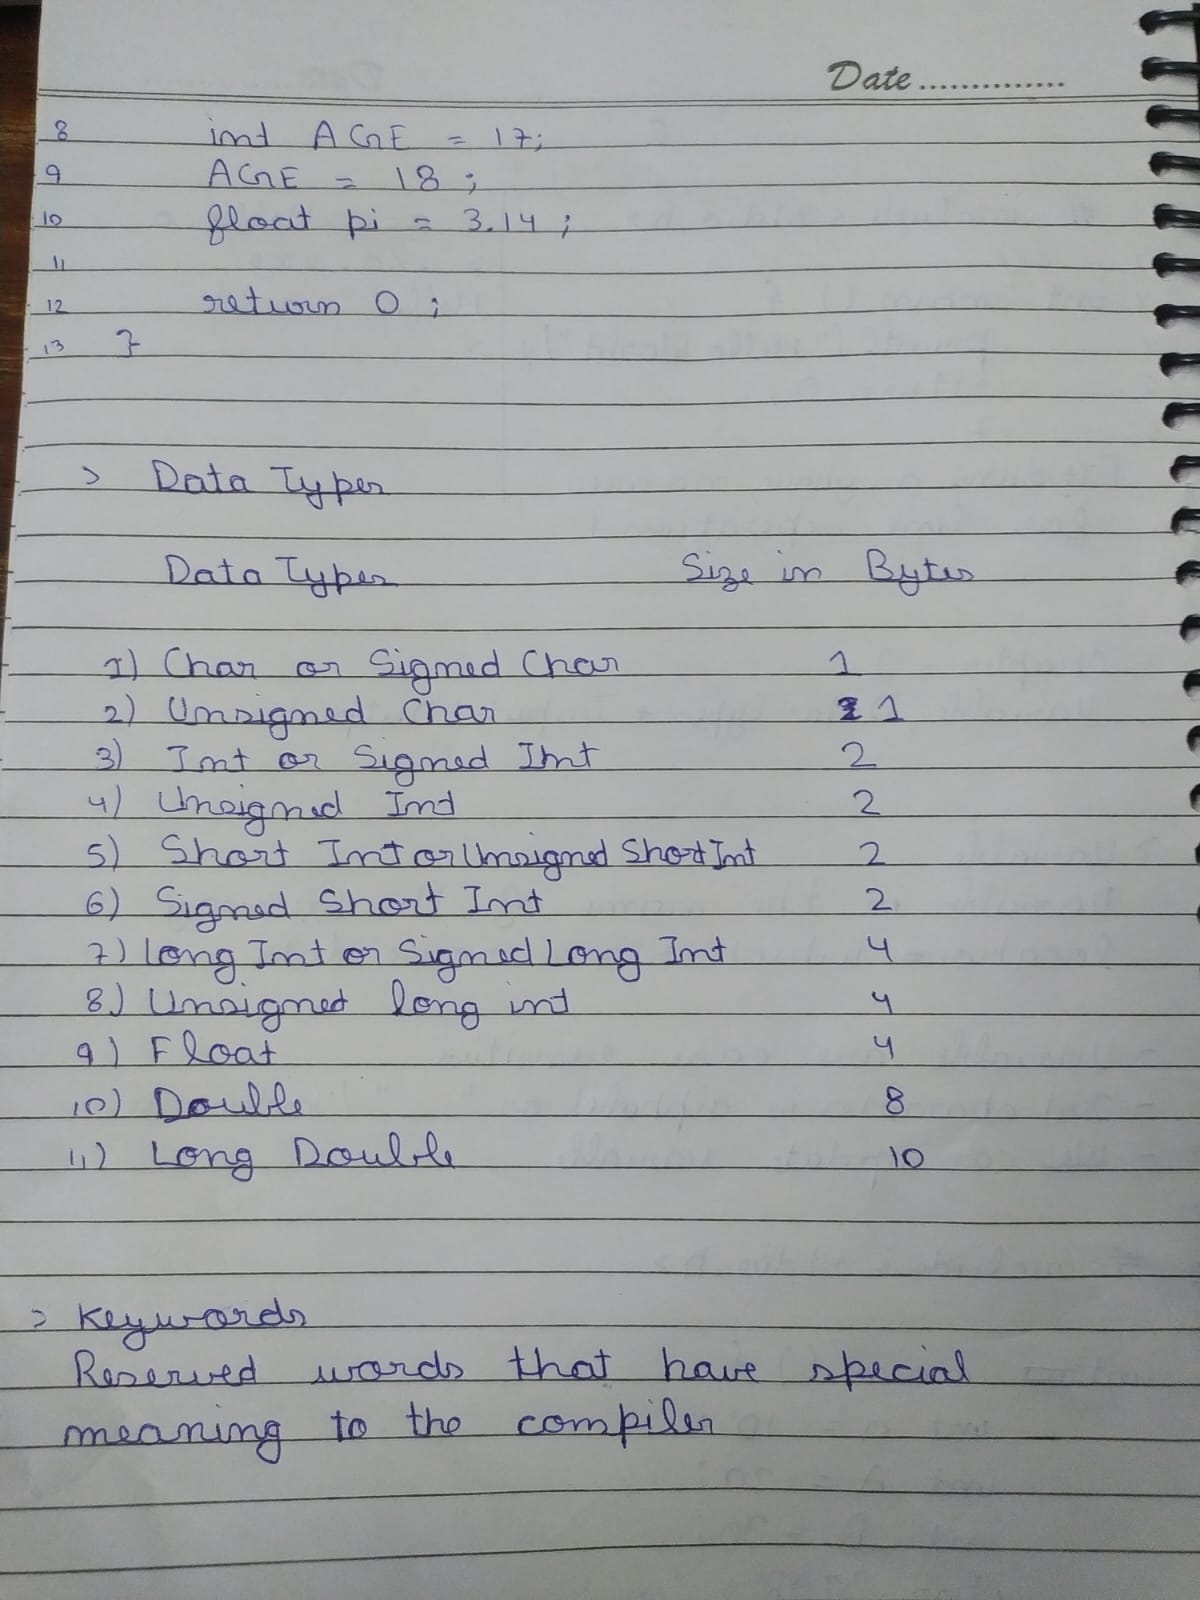 Date ..............
8 int AGE = 17;
9 AGE = 18 ;
10 float pi = 3.14 ;
11
12 return 0 ;
13 }
> Data Types
Data Types Size in Bytes
1) Char or Signed Char 1
2) Unsigned Char 1
3) Int or Signed Int 2
4) Unsigned Int 2
5) Short Int or Unsigned Short Int 2
6) Signed Short Int 2
7) Long Int or Signed Long Int 4
8) Unsigned long int 4
9) Float 4
10) Double 8
11) Long Double 10
> Keywords
Reserved words that have special
meaning to the compiler